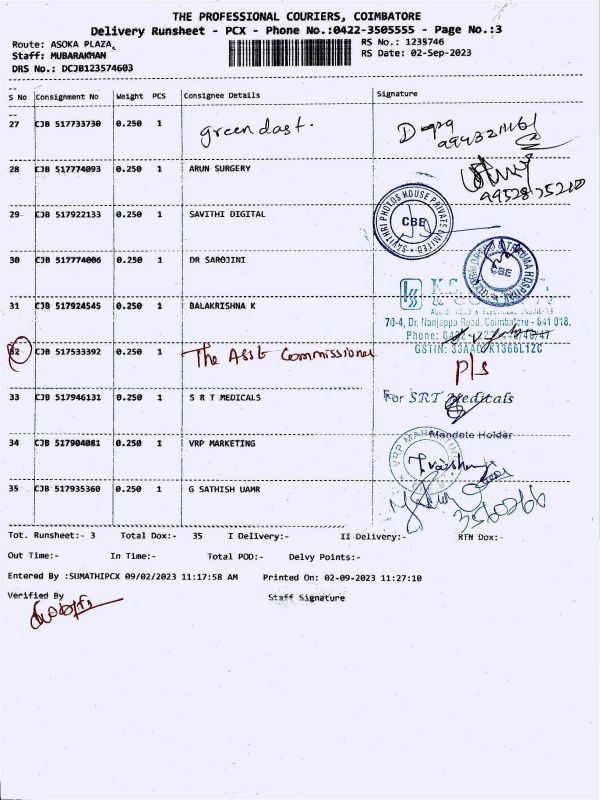 THE PROFESSIONAL COURIERS, COIMBATORE
Delivery Runsheet - PCX - Phone No.:0422-3505555 - Page No.:3
Route: ASOKA PLAZA, RS No.: 1235746
Staff: MUBARAKHAN RS Date: 02-Sep-2023
DRS No.: DCJB123574603
S No Consignment No Weight PCS Consignee Details Signature
27 CJB 517733730 0.250 1 green dast.
28 CJB 517774093 0.250 1 ARUN SURGERY
29 CJB 517922133 0.250 1 SAVITHI DIGITAL
SAVITHRI PHOTOS HOUSE PRIVATE LIMITED
CBE
30 CJB 517774006 0.250 1 DR SAROJINI
& TRAUMA HOSPITAL
CBE
31 CJB 517924545 0.250 1 BALAKRISHNA K
70-4, Dr. Nanjappa Road, Coimbatore - 641 018.
Phone:
GSTIN:
32 CJB 517533392 0.250 1 The Asst Commissioner
33 CJB 517946131 0.250 1 S R T MEDICALS
For SRT Medicals
34 CJB 517904081 0.250 1 VRP MARKETING
Mandate Holder
VRP
35 CJB 517935360 0.250 1 G SATHISH UAMR
Tot. Runsheet:- 3 Total Dox:- 35 I Delivery:- II Delivery:- RTN Dox:-
Out Time:- In Time:- Total POD:- Delvy Points:-
Entered By :SUMATHIPCX 09/02/2023 11:17:58 AM Printed On: 02-09-2023 11:27:10
Verified By Staff Signature